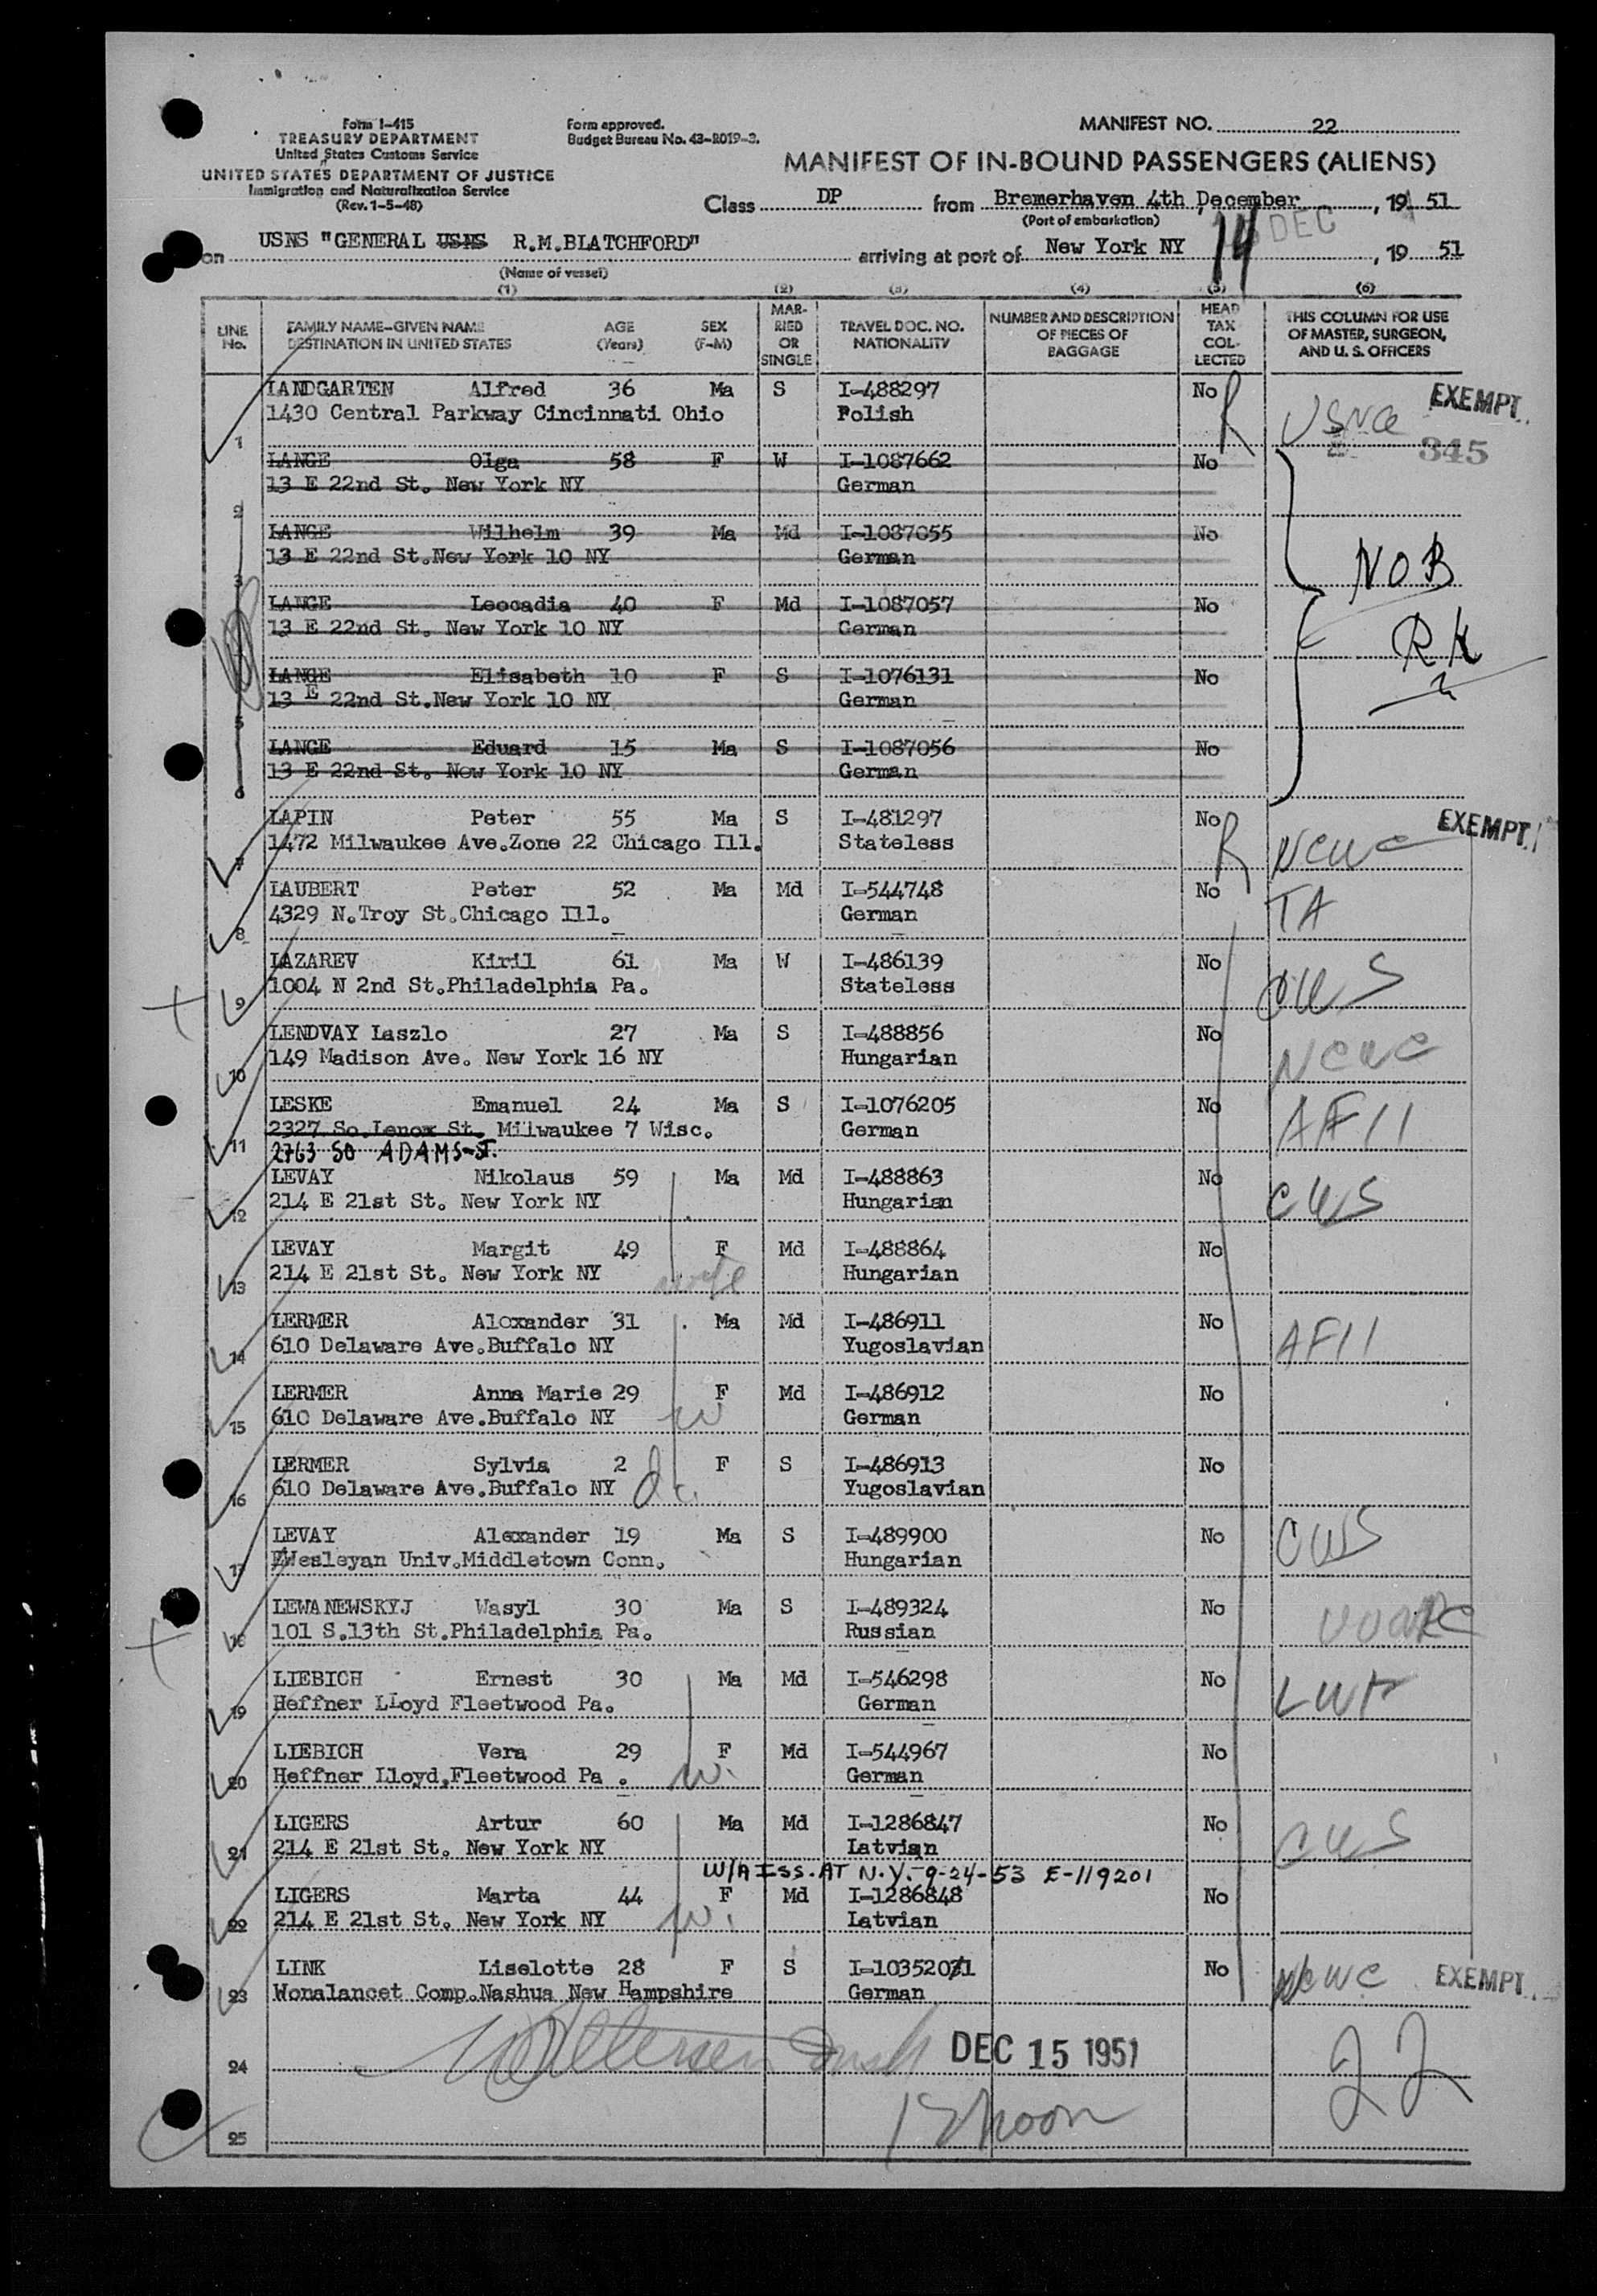 Form I-415
TREASURY DEPARTMENT
United States Customs Service
UNITED STATES DEPARTMENT OF JUSTICE
Immigration and Naturalization Service
(Rev. 1-5-48)
Form approved.
Budget Bureau No. 43-R019-3.
MANIFEST NO. 22
MANIFEST OF IN-BOUND PASSENGERS (ALIENS)
Class DP from Bremerhaven 4th December, 1951
(Port of embarkation)
on USNS "GENERAL USNS R.M.BLATCHFORD" arriving at port of New York NY 14 DEC, 19 51
(Name of vessel)
(1) (2) (3) (4) (5) (6)
LINE No. FAMILY NAME-GIVEN NAME DESTINATION IN UNITED STATES AGE (Years) SEX (F-M) MARRIED OR SINGLE TRAVEL DOC. NO. NATIONALITY NUMBER AND DESCRIPTION OF PIECES OF BAGGAGE HEAD TAX COLLECTED THIS COLUMN FOR USE OF MASTER, SURGEON, AND U. S. OFFICERS
LANDGARTEN Alfred 36 Ma S I-488297 No R USNA EXEMPT
1 1430 Central Parkway Cincinnati Ohio Polish
345
LANGE Olga 58 F W I-1087662 No
2 13 E 22nd St. New York NY German
LANGE Wilhelm 39 Ma Md I-1087055 No
3 13 E 22nd St.New York 10 NY German
NOB
LANGE Leocadia 40 F Md I-1087057 No
13 E 22nd St. New York 10 NY German
RK
LANGE Elisabeth 10 F S I-1076131 No
5 13 E 22nd St.New York 10 NY German
LANGE Eduard 15 Ma S I-1087056 No
6 13 E 22nd St. New York 10 NY German
LAPIN Peter 55 Ma S I-481297 No R NCWC EXEMPT
7 1472 Milwaukee Ave.Zone 22 Chicago Ill. Stateless
LAUBERT Peter 52 Ma Md I-544748 No TA
8 4329 N.Troy St.Chicago Ill. German
LAZAREV Kiril 61 Ma W I-486139 No CWS
9 1004 N 2nd St.Philadelphia Pa. Stateless
LENDVAY Laszlo 27 Ma S I-488856 No NCWC
10 149 Madison Ave. New York 16 NY Hungarian
LESKE Emanuel 24 Ma S I-1076205 No AFII
11 2327 So.Lenox St. Milwaukee 7 Wisc. German
2763 SO ADAMS ST.
LEVAY Nikolaus 59 Ma Md I-488863 No CWS
12 214 E 21st St. New York NY Hungarian
LEVAY Margit 49 F Md I-488864 No
13 214 E 21st St. New York NY wife Hungarian
LERMER Alexander 31 Ma Md I-486911 No AFII
14 610 Delaware Ave.Buffalo NY Yugoslavian
LERMER Anna Marie 29 F Md I-486912 No
15 610 Delaware Ave.Buffalo NY w German
LERMER Sylvia 2 F S I-486913 No
16 610 Delaware Ave.Buffalo NY Yugoslavian
LEVAY Alexander 19 Ma S I-489900 No CWS
17 Wesleyan Univ.Middletown Conn. Hungarian
LEWANEWSKYJ Wasyl 30 Ma S I-489324 No
18 101 S.13th St.Philadelphia Pa. Russian
LIEBICH Ernest 30 Ma Md I-546298 No LWF
19 Heffner LLoyd Fleetwood Pa. German
LIEBICH Vera 29 F Md I-544967 No
20 Heffner Lloyd,Fleetwood Pa . w. German
LIGERS Artur 60 Ma Md I-1286847 No CWS
21 214 E 21st St. New York NY Latvian
W/A ISS. AT N.Y. 9-24-53 E-119201
LIGERS Marta 44 F Md I-1286848 No
22 214 E 21st St. New York NY w. Latvian
LINK Liselotte 28 F S I-1035201 No NCWC EXEMPT
23 Wonalancet Comp.Nashua New Hampshire German
24 DEC 15 1951 22
12 noon
25